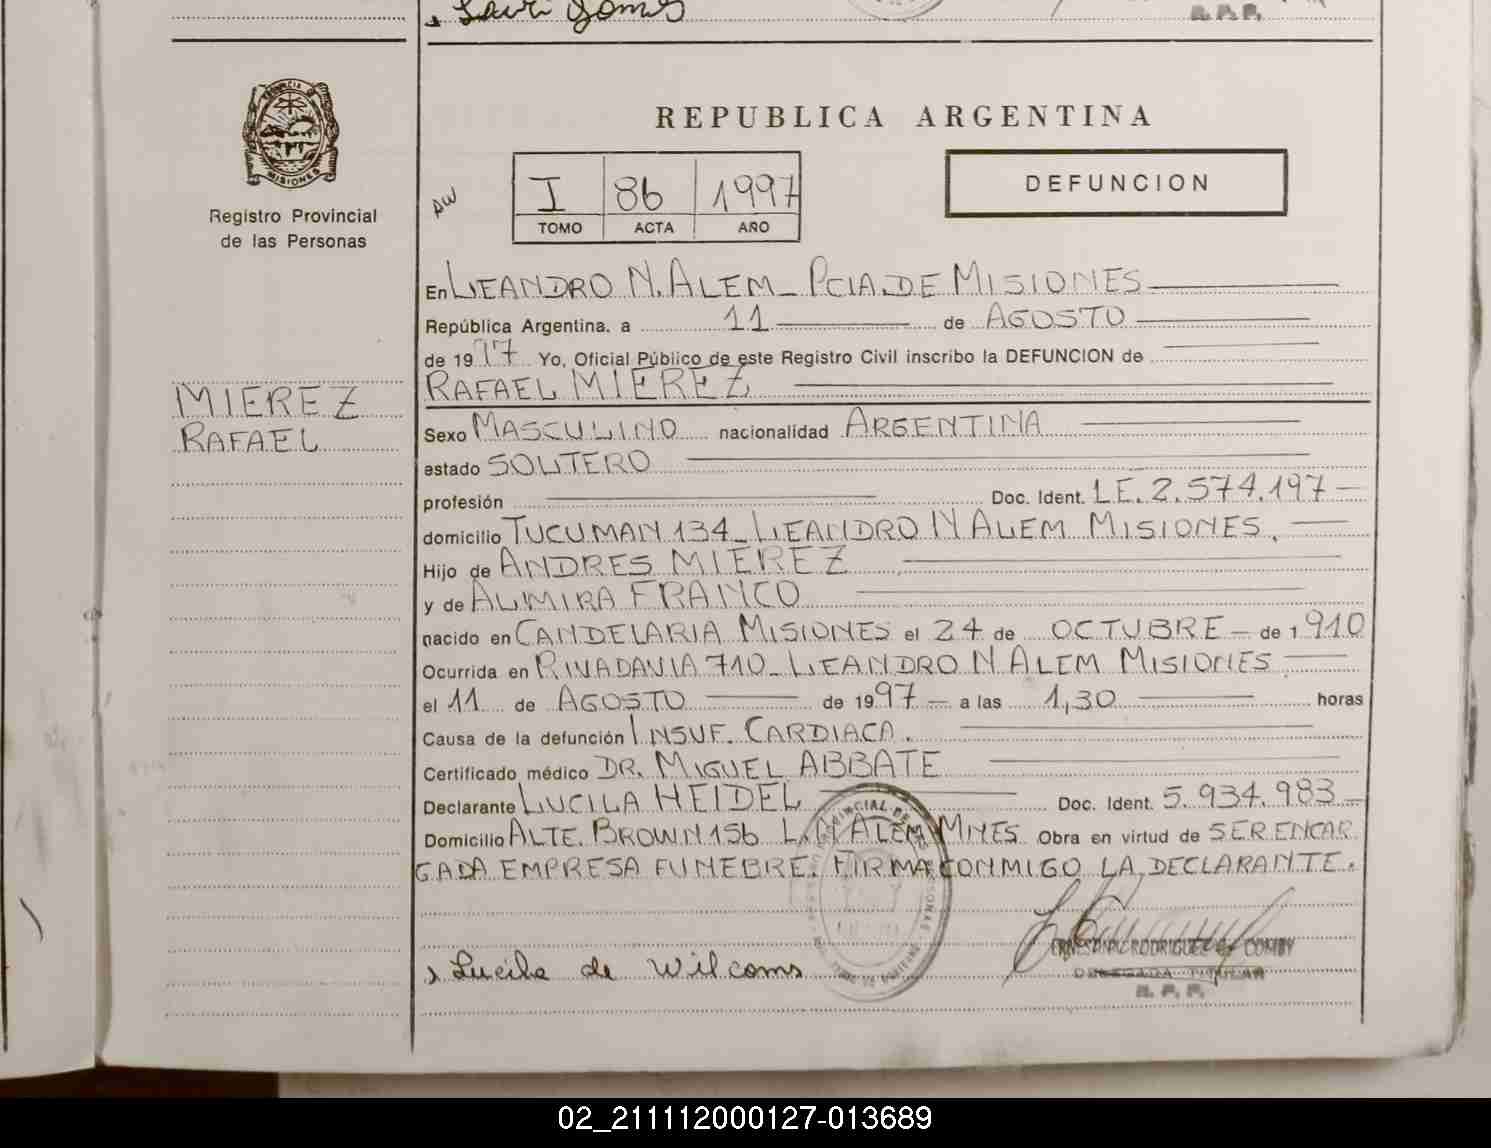 REPUBLICA ARGENTINA
PROVINCIA DE
MISIONES
Registro Provincial
de las Personas
MIEREZ
RAFAEL
I 86 1997
TOMO ACTA AÑO
DEFUNCION
En LEANDRO N. ALEM - PCIA. DE MISIONES
República Argentina, a 11 de AGOSTO
de 1997 Yo, Oficial Público de este Registro Civil inscribo la DEFUNCION de
RAFAEL MIEREZ
Sexo MASCULINO nacionalidad ARGENTINA
estado SOLTERO
profesión Doc. Ident. L.E. 2.574.197-
domicilio TUCUMAN 134_LEANDRO N ALEM MISIONES.
Hijo de ANDRES MIEREZ
y de ALMIRA FRANCO
nacido en CANDELARIA MISIONES el 24 de OCTUBRE - de 1910
Ocurrida en RIVADAVIA 710_LEANDRO N ALEM MISIONES
el 11 de AGOSTO de 1997 - a las 1,30 horas
Causa de la defunción INSUF. CARDIACA.
Certificado médico DR. MIGUEL ABBATE
Declarante LUCILA HEIDEL Doc. Ident. 5.934.983-
Domicilio ALTE. BROWN 156 L.N ALEM MNES. Obra en virtud de SER ENCAR
GADA EMPRESA FUNEBRE. FIRMA CONMIGO LA DECLARANTE.
Lucila de Wilcoms
RODRIGUEZ
DELEGADA TITULAR
R. P. P.
02_211112000127-013689